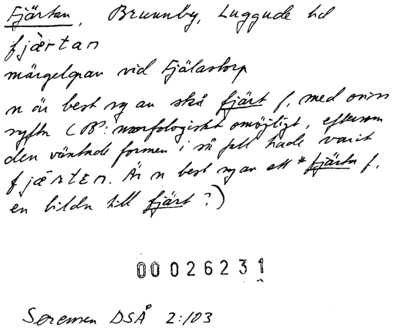 Fjärtan, Brunnby, Luggude hd
fjærtan
märgelgrav vid Fjälastorp
n är best sg av skå fjärt f, med oviss
syftn (OBS: morfologiskt omöjligt, eftersom
den väntade formen i så fall hade varit
fjærten. Är n best sg av ett *fjärta f,
en bildn till fjärt?)
00026231
Serensen DSÅ 2:103